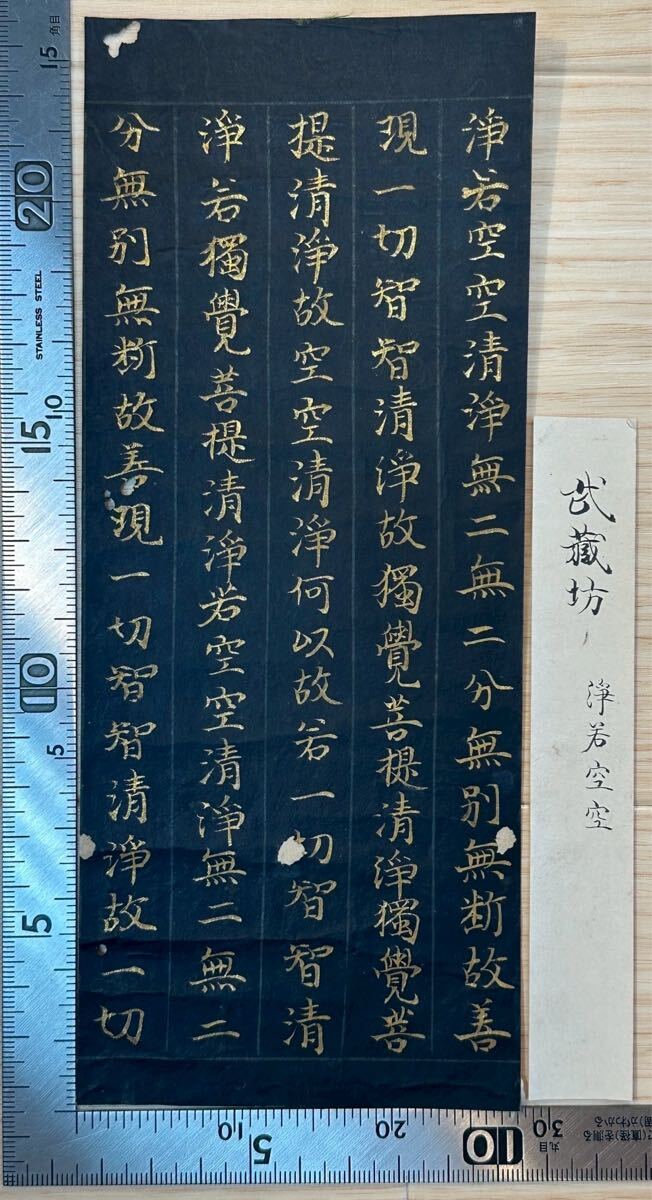 淨若空空清淨無二無二分無別無斷故善
現一切智智清淨故獨覺菩提清淨獨覺菩
提清淨故空空清淨何以故若一切智智清
淨若獨覺菩提清淨若空空清淨無二無二
分無別無斷故善現一切智智清淨故一切
武藏坊
淨若空空
STAINLESS STEEL
15 角目
20
10
15
10
5
5
10
5
20
10
30 丸目